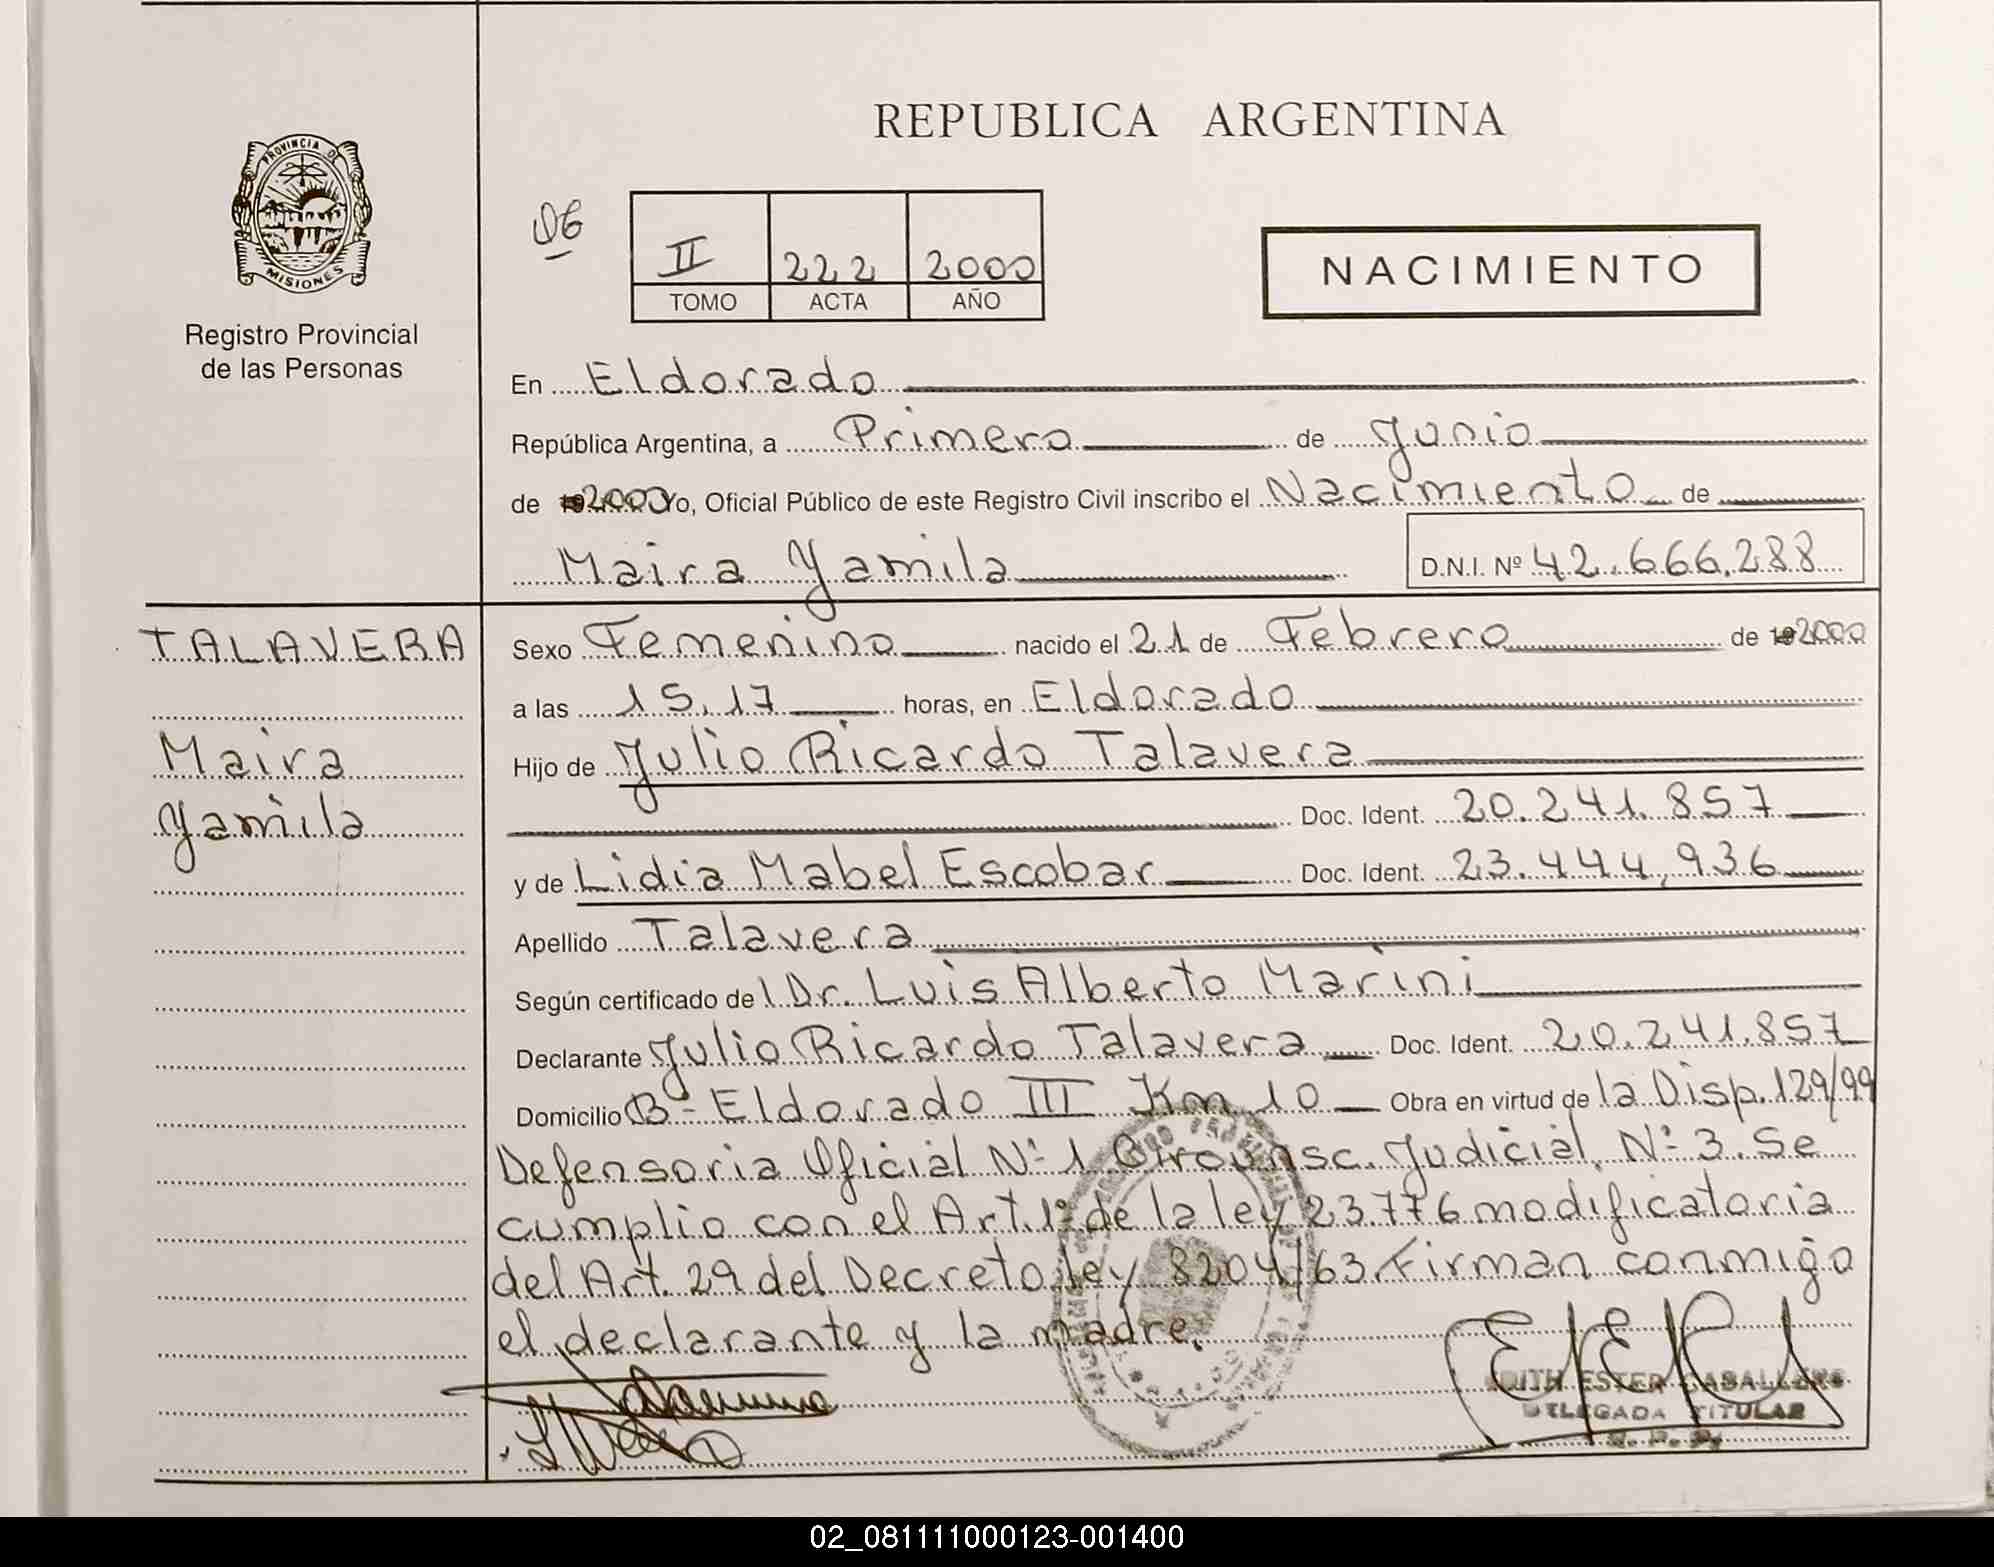 REPUBLICA ARGENTINA
PROVINCIA DE
MISIONES
Registro Provincial
de las Personas
II 222 2000
TOMO ACTA AÑO
NACIMIENTO
En Eldorado
República Argentina, a Primero de Junio
de 2000 Yo, Oficial Público de este Registro Civil inscribo el Nacimiento de
Maira Yamila D.N.I. Nº 42.666.288
TALAVERA
Maira
Yamila
Sexo Femenino nacido el 21 de Febrero de 2000
a las 15.17 horas, en Eldorado
Hijo de Julio Ricardo Talavera
Doc. Ident. 20.241.857
y de Lidia Mabel Escobar Doc. Ident. 23.444.936
Apellido Talavera
Según certificado del Dr. Luis Alberto Marini
Declarante Julio Ricardo Talavera Doc. Ident. 20.241.857
Domicilio Bº Eldorado III Km 10 Obra en virtud de la Disp. 129/99
Defensoria Oficial Nº 1 Circunsc. Judicial Nº 3. Se
cumplio con el Art. 1º de la ley 23776 modificatoria
del Art. 29 del Decreto ley 8204/63 Firman conmigo
el declarante y la madre.
EDITH ESTER CABALLERO
DELEGADA TITULAR
R. P. P.
02_081111000123-001400